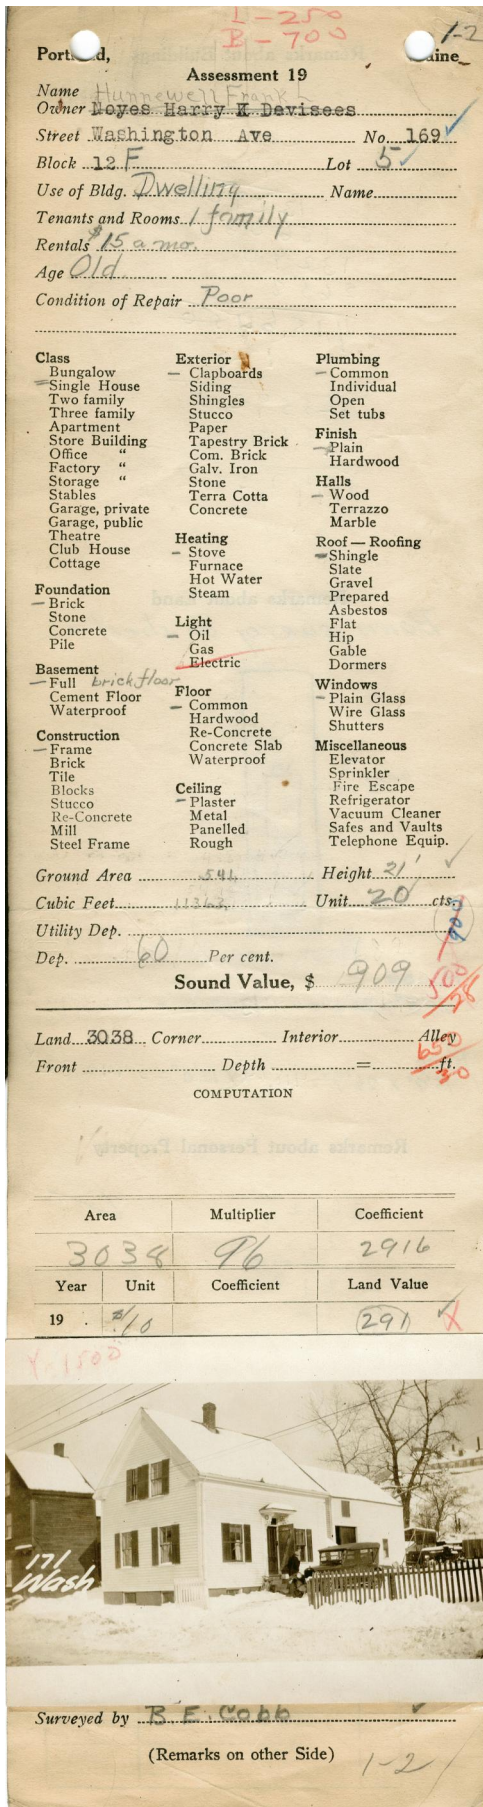 L-250
B-700
1-2
Portland, Maine
Assessment 19
Name Hunnewell Frank L
Owner Noyes Harry K Devisees
Street Washington Ave No. 169
Block 12 F Lot 5
Use of Bldg. Dwelling Name
Tenants and Rooms 1 family
Rentals $15 a mo.
Age Old
Condition of Repair Poor
Class
Bungalow
Single House
Two family
Three family
Apartment
Store Building
Office "
Factory "
Storage "
Stables
Garage, private
Garage, public
Theatre
Club House
Cottage
Foundation
Brick
Stone
Concrete
Pile
Basement
Full brick floor
Cement Floor
Waterproof
Construction
Frame
Brick
Tile
Blocks
Stucco
Re-Concrete
Mill
Steel Frame
Exterior
Clapboards
Siding
Shingles
Stucco
Paper
Tapestry Brick
Com. Brick
Galv. Iron
Stone
Terra Cotta
Concrete
Heating
Stove
Furnace
Hot Water
Steam
Light
Oil
Gas
Electric
Floor
Common
Hardwood
Re-Concrete
Concrete Slab
Waterproof
Ceiling
Plaster
Metal
Panelled
Rough
Plumbing
Common
Individual
Open
Set tubs
Finish
Plain
Hardwood
Halls
Wood
Terrazzo
Marble
Roof — Roofing
Shingle
Slate
Gravel
Prepared
Asbestos
Flat
Hip
Gable
Dormers
Windows
Plain Glass
Wire Glass
Shutters
Miscellaneous
Elevator
Sprinkler
Fire Escape
Refrigerator
Vacuum Cleaner
Safes and Vaults
Telephone Equip.
Ground Area 541 Height 21'
Cubic Feet 11363 Unit 20 cts.
900
Utility Dep.
Dep. 60 Per cent.
Sound Value, $ 909
500/28
Land 3038 Corner Interior Alley
650/30
Front Depth = ft.
COMPUTATION
Area Multiplier Coefficient
3038 96 2916
Year Unit Coefficient Land Value
19 . $/10 291 X
Y-1500
171
Wash
Surveyed by B. E. Cobb
(Remarks on other Side)
1-2